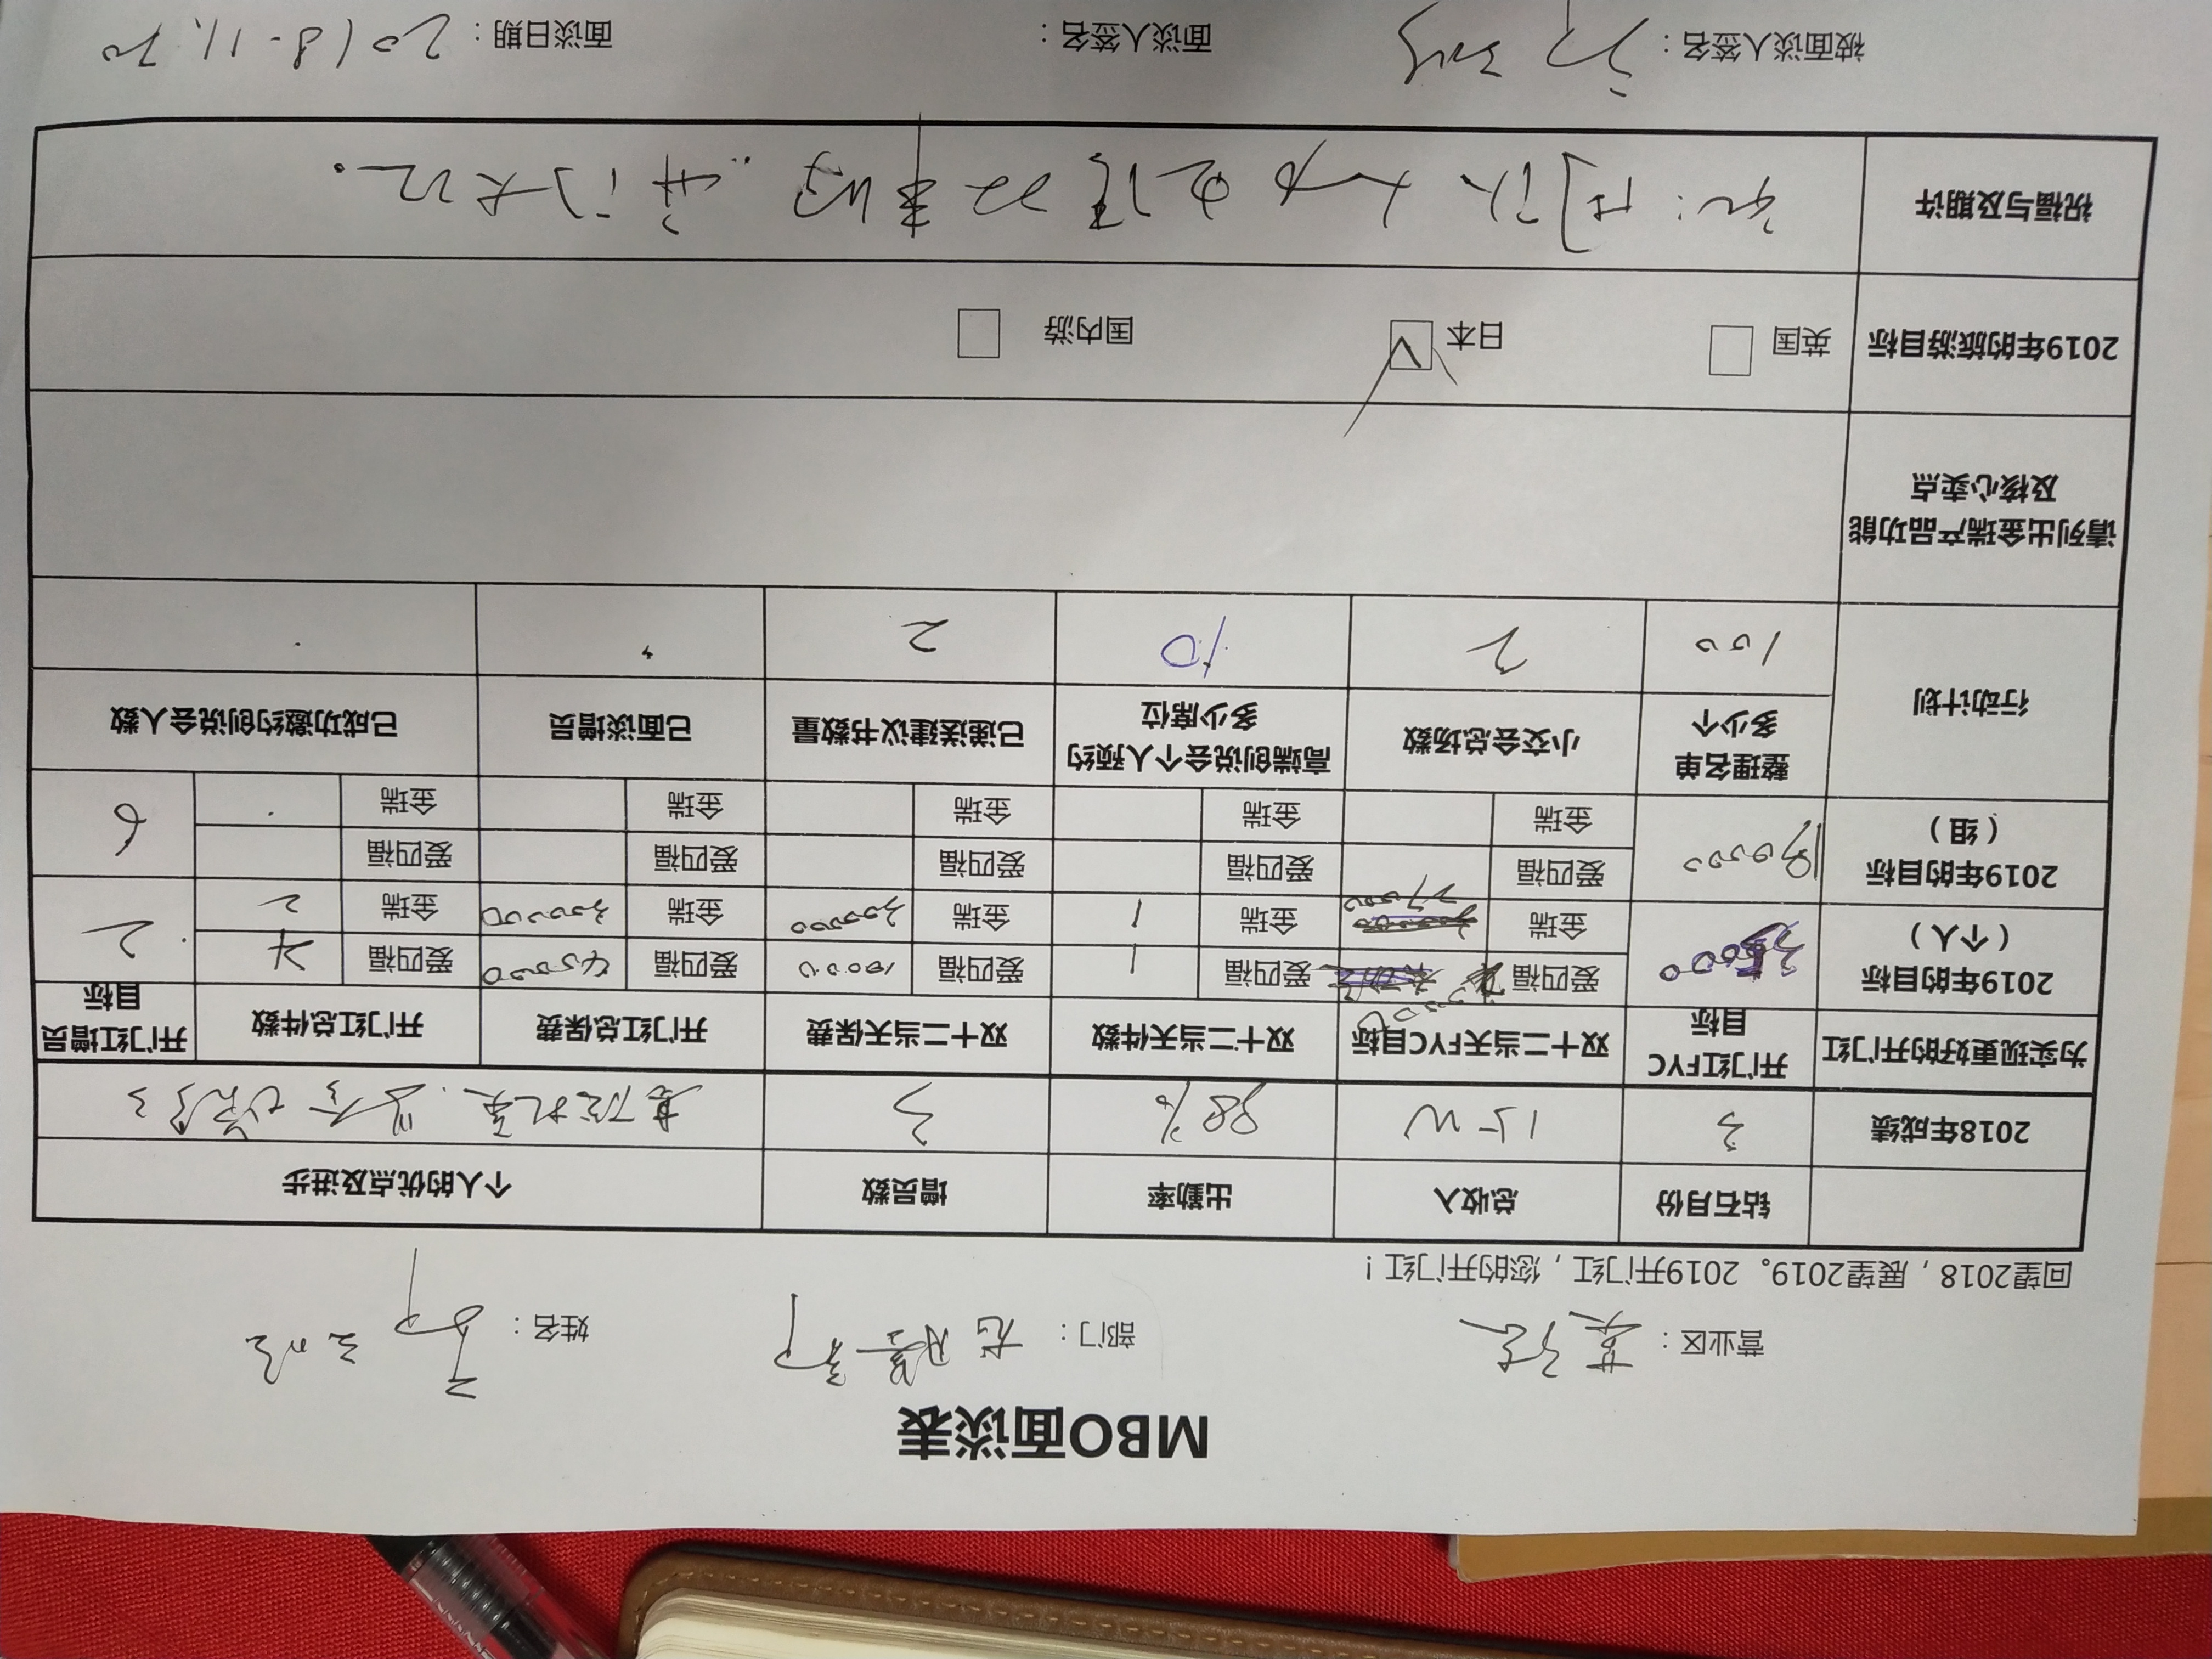 MBO面谈表
营业区： 部门： 姓名：
回望2018，展望2019。2019开门红，您的开门红！
钻石月份 总收入 出勤率 增员数 个人的优点及进步
2018年成绩 3 15W 98% 3
为实现更好的开门红 开门红FYC目标 双十二当天FYC目标 双十二当天件数 双十二当天保费 开门红总保费 开门红总件数 开门红增员目标
2019年的目标（个人） 爱四福 爱四福 1 爱四福 10000 爱四福 45000 爱四福 4 2
金瑞 金瑞 1 金瑞 200000 金瑞 金瑞 2
2019年的目标（组） 爱四福 爱四福 爱四福 爱四福 爱四福 6
金瑞 金瑞 金瑞 金瑞 金瑞
行动计划 整理名单多少个 小交会总场数 高端创说会个人预约多少席位 已递送建议书数量 已面谈增员 已成功邀约创说会人数
100 2 10 2
请列出金瑞产品功能及核心卖点
2019年的旅游目标 英国 日本 国内游
祝福与及期许 祝：团队
被面谈人签名： 面谈人签名： 面谈日期：2018.11.20